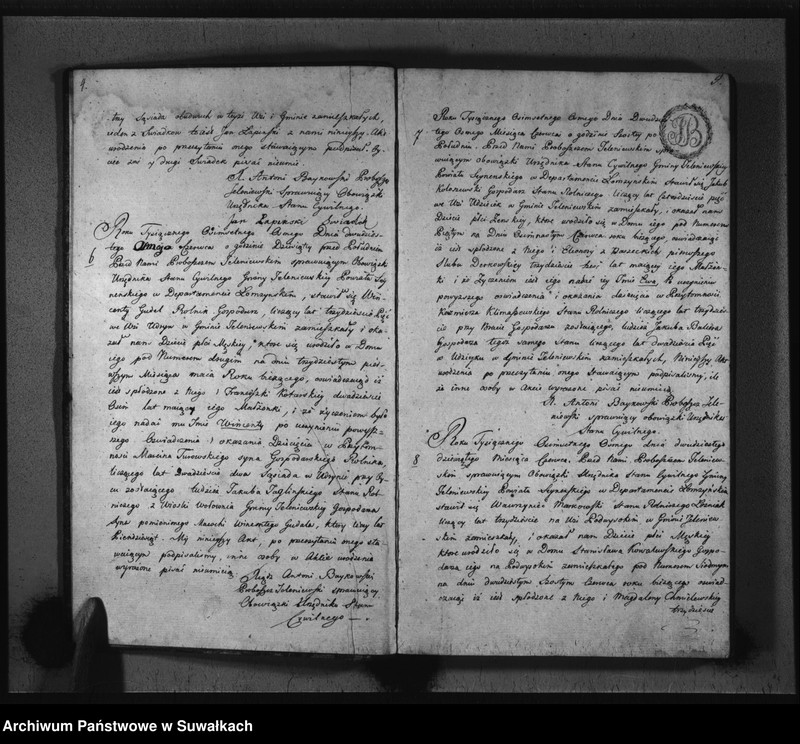 4.
trzy Sąsiada obudwuch w teyże Wsi i Gminie zamieszkałych,
ieden z Swiadkow to iest Jan Łapinski z nami ninieyszy Akt
urodzenia po przeczytaniu onego stawaiącym podpisał. Oy-
ciec zaś y drugi Swiadek pisać nieumie.
X. Antoni Baykowski Proboszcz
Jeleniewski Sprawuiący Obowiązki
Urzędnika Stanu Cywilnego.
Jan Łapinski Swiadek
6
Roku Tysiącznego Osimsetnego Osmego Dnia dwudzies-
tego Czerwca o godzinie Dziewiątey przed Południem
Przed Nami Proboszczem Jeleniewskim sprawuiącym Obowiązki
Urzędnika Stanu Cywilnego Gminy Jeleniewskiey Powiatu Sey-
nenskiego w Departamencie Łomżynskim, stawił się Win-
centy Gudel Rolnik Gospodarz, liczący lat trzydzieście Pięć
we Wsi Udryn w Gminie Jeleniewskiey zamieszkały i oka-
zał nam Dziecie płci Męskiey, ktore się urodziło w Domu
iego pod Numerem drugim na dniu trzydziestym pier-
wszym Miesiąca maia Roku bieżącego, oswiadczaiąc iż
iest spłodzone z Niego i Franciszki Kotarskiey dwadzieście
lat maiącey iego Małżonki, i że życzeniem było
iego nadać mu Imie Wincenty po uczynieniu powyż-
szego Oswiadczenia i okazaniu Dziecięcia w Przytom-
nosci Marcina Turowskiego syna Gospodarskiego Rolnika,
liczącego lat Dwadzieście dwa Sąsiada w Udrynie przy Oy-
cu zostaiącego tudzież Jakuba Stanu Rol-
niczego z Wioski Wołownia Gminy Jeleniewskiey Gospodarza
Syna pomienionego Wincentego Gudela, liczący lat
Piendziesiąt. My ninieyszy Akt, po przeczytaniu onego sta-
waiącym podpisalismy, inne osoby w Akcie urodzenia
wyrazone pisać nieumieią.
Xiądz Antoni Baykowski
Proboszcz Jeleniewski sprawuiący
Obowiązki Urzędnika Stanu
Cywilnego
7
Roku Tysiącznego Osimsetnego Osmego Dnia Dwudzies-
tego Osmego Miesiąca Czerwca o godzinie Szostey po
Południu. Przed Nami Proboszczem Jeleniewskim spra-
wuiącym Obowiązki Urzędnika Stanu Cywilnego Gminy Jeleniewskiey
Powiatu Seynenskiego w Departamencie Łomżynskim Stawił się Jakub
Gospodarz Stanu Rolniczego, liczący lat Czterdzieście pięć
we Wsi Udziek w Gminie Jeleniewskiey zamieszkały, i okazał nam
Dziecie płci Żenskiey, ktore urodziło się w Domu iego pod Numerem
Piątym na Dniu Osimnastym Czerwca roku bieżącego, oswiadczaiąc
iż iest spłodzona z Niego i Elionory z pierwszego
Slubu trzydzieście sześć lat maiącey iego Małżon-
ki i iż Życzeniem iest iego nadać iey Imie Ewa, Po uczynieniu
powyższego oswiadczenia i okazaniu dziecięcia w Przytomnosci
Kazimierza Klimaszewskiego Stanu Rolniczego liczącego lat trzydzies-
cie przy Bracie Gospodarzu zostaiącego, tudzież Jakuba Balicha
Gospodarza tegoż samego Stanu liczącego lat dwadzieścia Pięć
w Udzieku w Gminie Jeleniewskiey zamieszkałych, Ninieyszy Akt
urodzenia po przeczytaniu onego Stawaiącym podpisalismy, ile
że inne osoby w Akcie wyrazone pisać nieumieią.
X. Antoni Baykowski Proboszcz Jele-
niewski sprawuiący obowiązki Urzędnika
Stanu Cywilnego.
8
Roku Tysiącznego Osimsetnego Osmego dnia dwudziestego
dziewiątego Miesiąca Czerwca. Przed Nami Proboszczem Jeleniew-
skim sprawuiącym Obowiązki Urzędnika Stanu Cywilnego Gminy
Jeleniewskiey Powiatu Seynenskiego w Departamencie Łomżynskim
stawił się Wawrzyniec Markowski Stanu Rolniczego
liczący lat trzydzieście na Wsi Rodowyskon w Gminie Jeleniew-
skiey zamieszkały, i okazał nam Dziecie płci Męskiey
ktore urodziło się w Domu Stanisława Kowalewskiego Gospo-
darza iego na Rodowyskon zamieszkałego pod Numerem Siodmym
na dniu dwudziestym Szostym Czerwca roku bieżącego oswiad-
czaiąc iż iest spłodzone z Niego i Magdaleny Chmielewskiey
trzydzieście
Archiwum Państwowe w Suwałkach